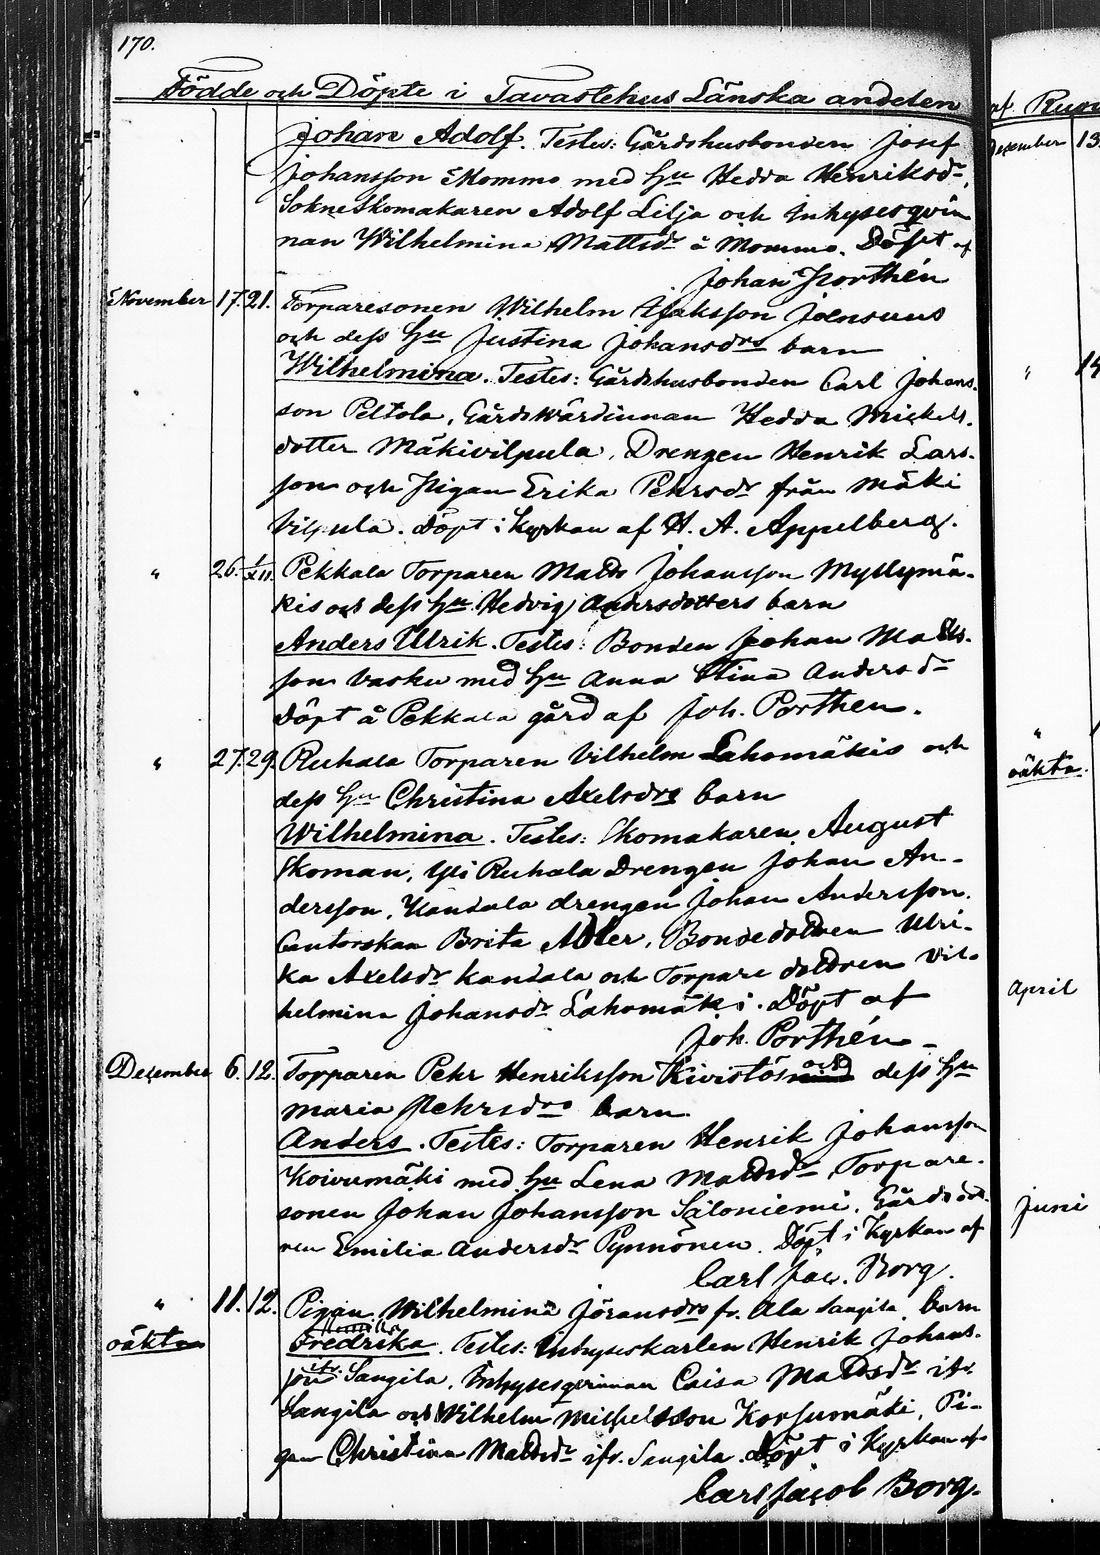 170.
Födde och Döpte i Tavastehus Länska andelen
Johan Adolf. Testes: Gårdshusbonden Josef
Johansson Mommo med hu Hedda Henriksdr,
Sokneskomakaren Adolf Lilja och Inhysesqvin
nan Wilhelmina Mattsdr å Mommo. Döpt af
Johan Porthén
November 17. 21. Torparesonen Wilhelm Isaksson Joensuus
och dess hu Justina Johansdrs barn
Wilhelmina. Testes: Gårdshusbonden Carl Johans.
son Peltola, Gårdswärdinnan Hedda Mickels.
dotter Mäkivilpula, Drengen Henrik Lars-
son och Pigan Erika Pehrsdr från Mäki
Vilpula. Döpt i Kyrkan af H. A. Appelberg.
" 26. 1/XII. Pekkala Torparen Matts Johansson Myllymä-
kis och dess hu Hedvig Andersdotters barn
Anders Ulrik. Testes: Bonden Johan Matts.
son Vasku med hu Anna Stina Andersd-
Döpt å Pekkala gård af Joh. Porthen.
" 27. 29. Ruhala Torparen Vilhelm Lahomäkis och
dess hu Christina Axelsdrs barn
Wilhelmina. Testes: Skomakaren August
Skoman, Yli Ruhala Drengen Johan An-
dersson, Kandala drengen Johan Andersson.
Cantorskan Brita Adler, Bondedottren Ulri-
ka Axelsdr Kandala och Torpare dottren Vil-
helmina Johansdr Lahomäki. Döpt af
Joh. Porthén-
December 6. 12. Torparen Pehr Henriksson Kivistös och dess hu
Maria Pehrsdrs barn
Anders. Testes: Torparen Henrik Johansson
Koivumäki med hu Lena Mattsdr, Torpare-
sonen Johan Johansson Saloniemi, Gårdsdot.
ren Emilia Andersdr Pynnönen. Döpt i Kyrkan af
Carl Jac. Borg.
" 11. 12. Pigan Wilhelmina Jöransdrs fr. Ala Sangila barn
oäkta Fredrika. Testes: Inhyseskarlen Henrik Johans-
son ifr. Sangila, Inhysesqvinnan Caisa Mattsdr ifr.
Sangila och Wilhelm Korsumäki, Pi-
gan Christina Mattsdr ifr. Sangila. Döpt i Kyrkan af
Carl Jacob Borg.
af
December 13.
" 14
"
oäkta.
April
Juni